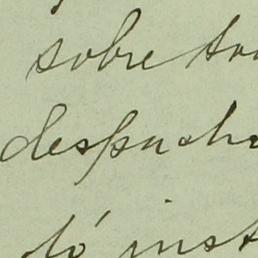 sobre to
despach
dó inst